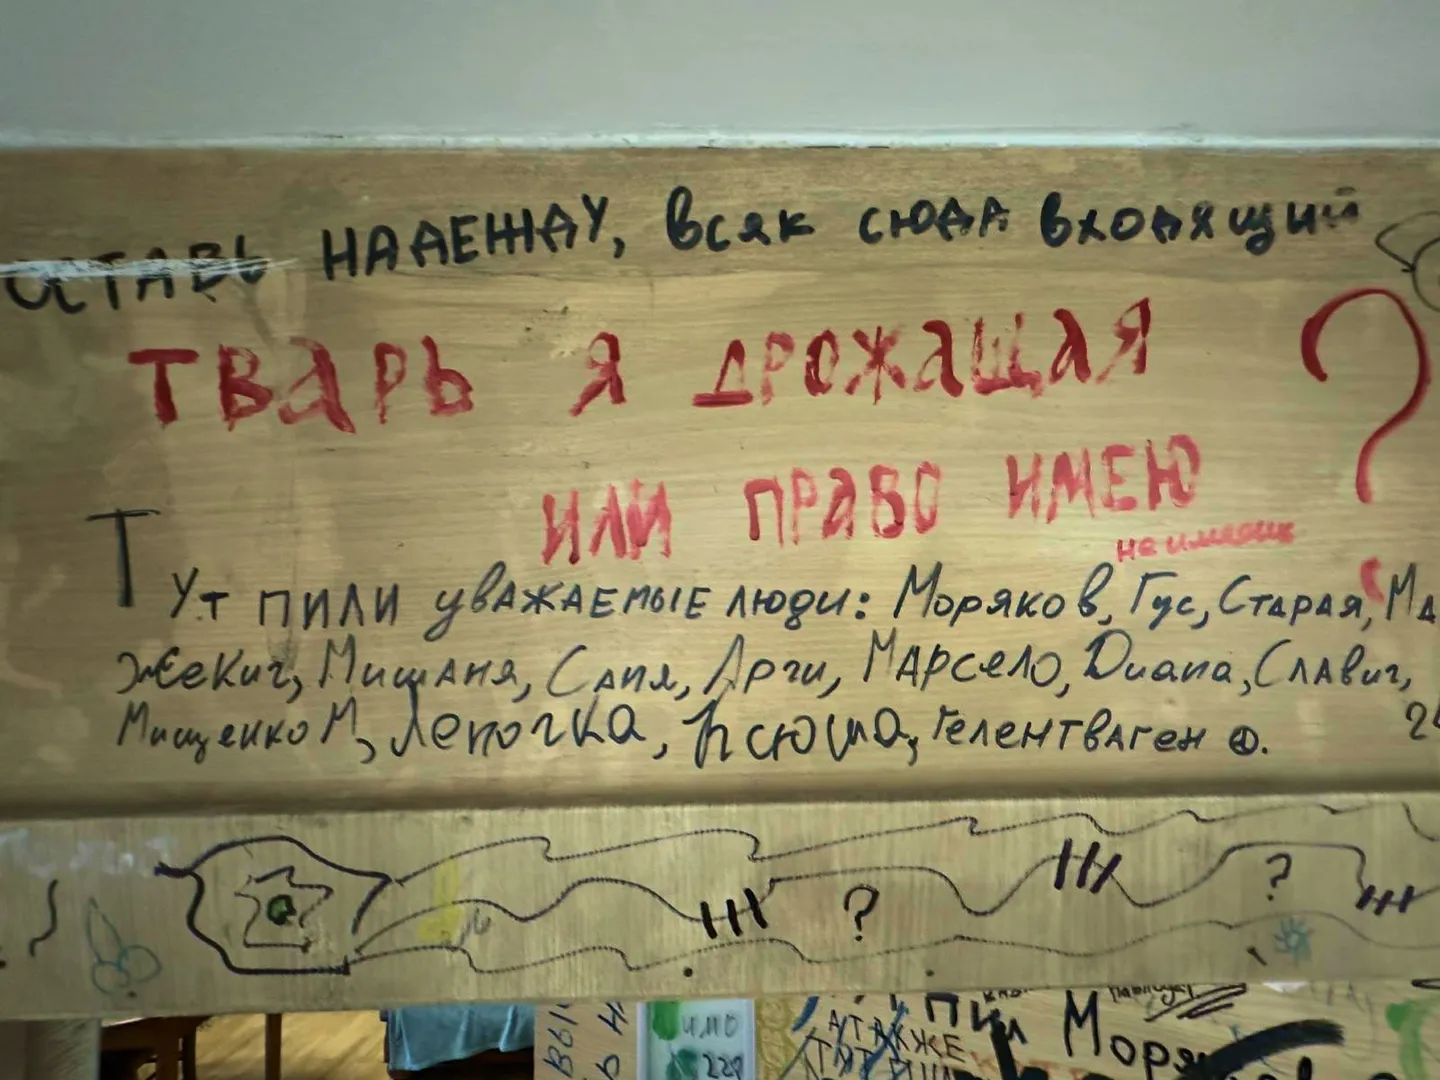 ОСТАВЬ НАДЕЖДУ, всяк сюда входящий
ТВАРЬ Я ДРОЖАЩАЯ
ИЛИ ПРАВО ИМЕЮ ?
не имеешь
Тут пили уважаемые люди: Моряков, Гус, Старая, Ма
Жекич, Мишаня, Саня, Арги, Марсело, Диана, Славич,
Мищенко М, Лепочка, Ксюша, Гелентваген
? ?
имо
228
А ТАКЖЕ
пил Моряков